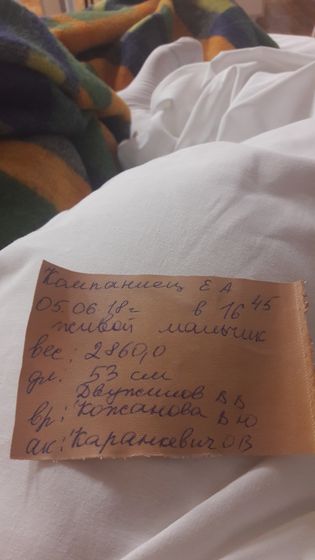 Компаниец Е А
05.06.18г в 16 45
живой мальчик
вес: 2860,0
дл. 53 см
Двужилов В В
вр: Кожанова В Ю
ак: Каранкевич О В